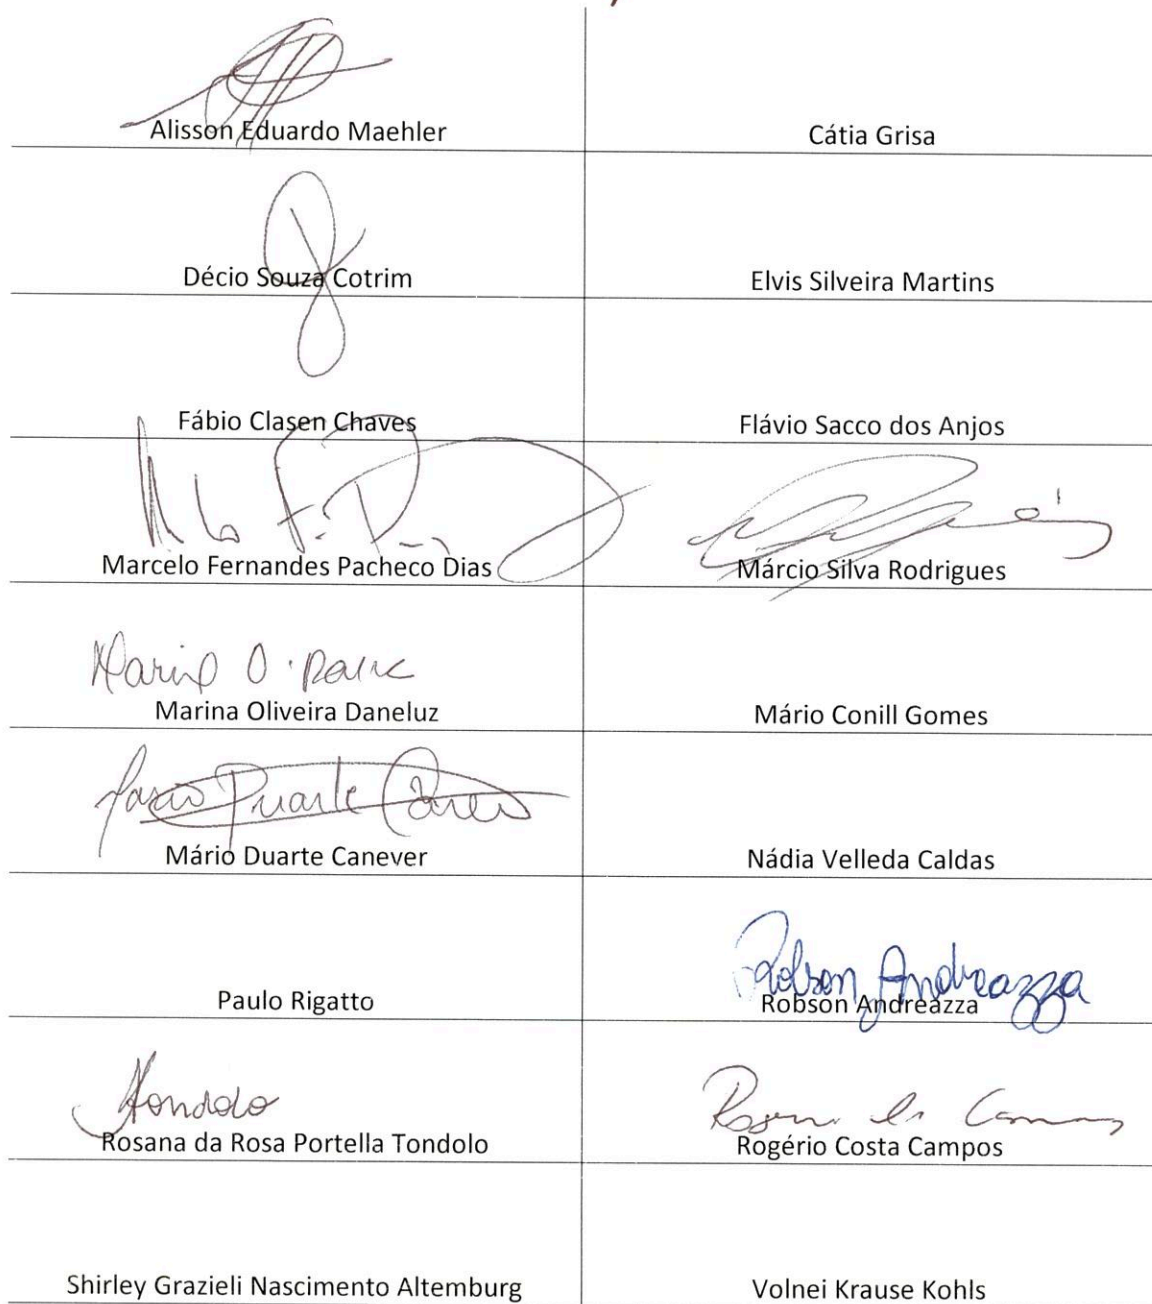 Alisson Eduardo Maehler
Cátia Grisa
Décio Souza Cotrim
Elvis Silveira Martins
Fábio Clasen Chaves
Flávio Sacco dos Anjos
Marcelo Fernandes Pacheco Dias
Márcio Silva Rodrigues
Marina Oliveira Daneluz
Mário Conill Gomes
Mário Duarte Canever
Nádia Velleda Caldas
Robson Andreazza
Paulo Rigatto
Robson Andreazza
Tondolo
Rosana da Rosa Portella Tondolo
Rogério Costa Campos
Shirley Grazieli Nascimento Altemburg
Volnei Krause Kohls